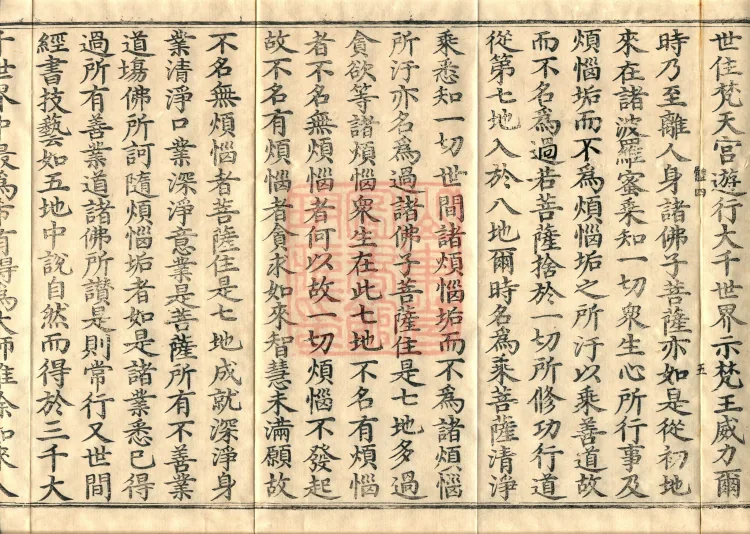 世住梵天宮遊行大千世界示梵王威力爾
時乃至離人身諸佛子菩薩亦如是從初地
來在諸波羅蜜乘知一切衆生心所行事及
煩惱垢而不爲煩惱垢之所汙以乘善道故
而不名爲過若菩薩捨於一切所修功行道
從第七地入於八地爾時名爲乘菩薩清淨
乘悉知一切世間諸煩惱垢而不爲諸煩惱
所汙亦名爲過諸佛子菩薩住是七地多過
貪欲等諸煩惱衆生在此七地不名有煩惱
者不名無煩惱者何以故一切煩惱不發起
故不名有煩惱者貪求如來智慧未滿願故
不名無煩惱者菩薩住是七地成就深淨身
業清淨口業深淨意業是菩薩所有不善業
道塲佛所訶隨煩惱垢者如是諸業悉已得
過所有善業道諸佛所讃是則常行又世間
經書技藝如五地中說自然而得於三千大
千世界中最爲希有得爲大師唯除如來入
五